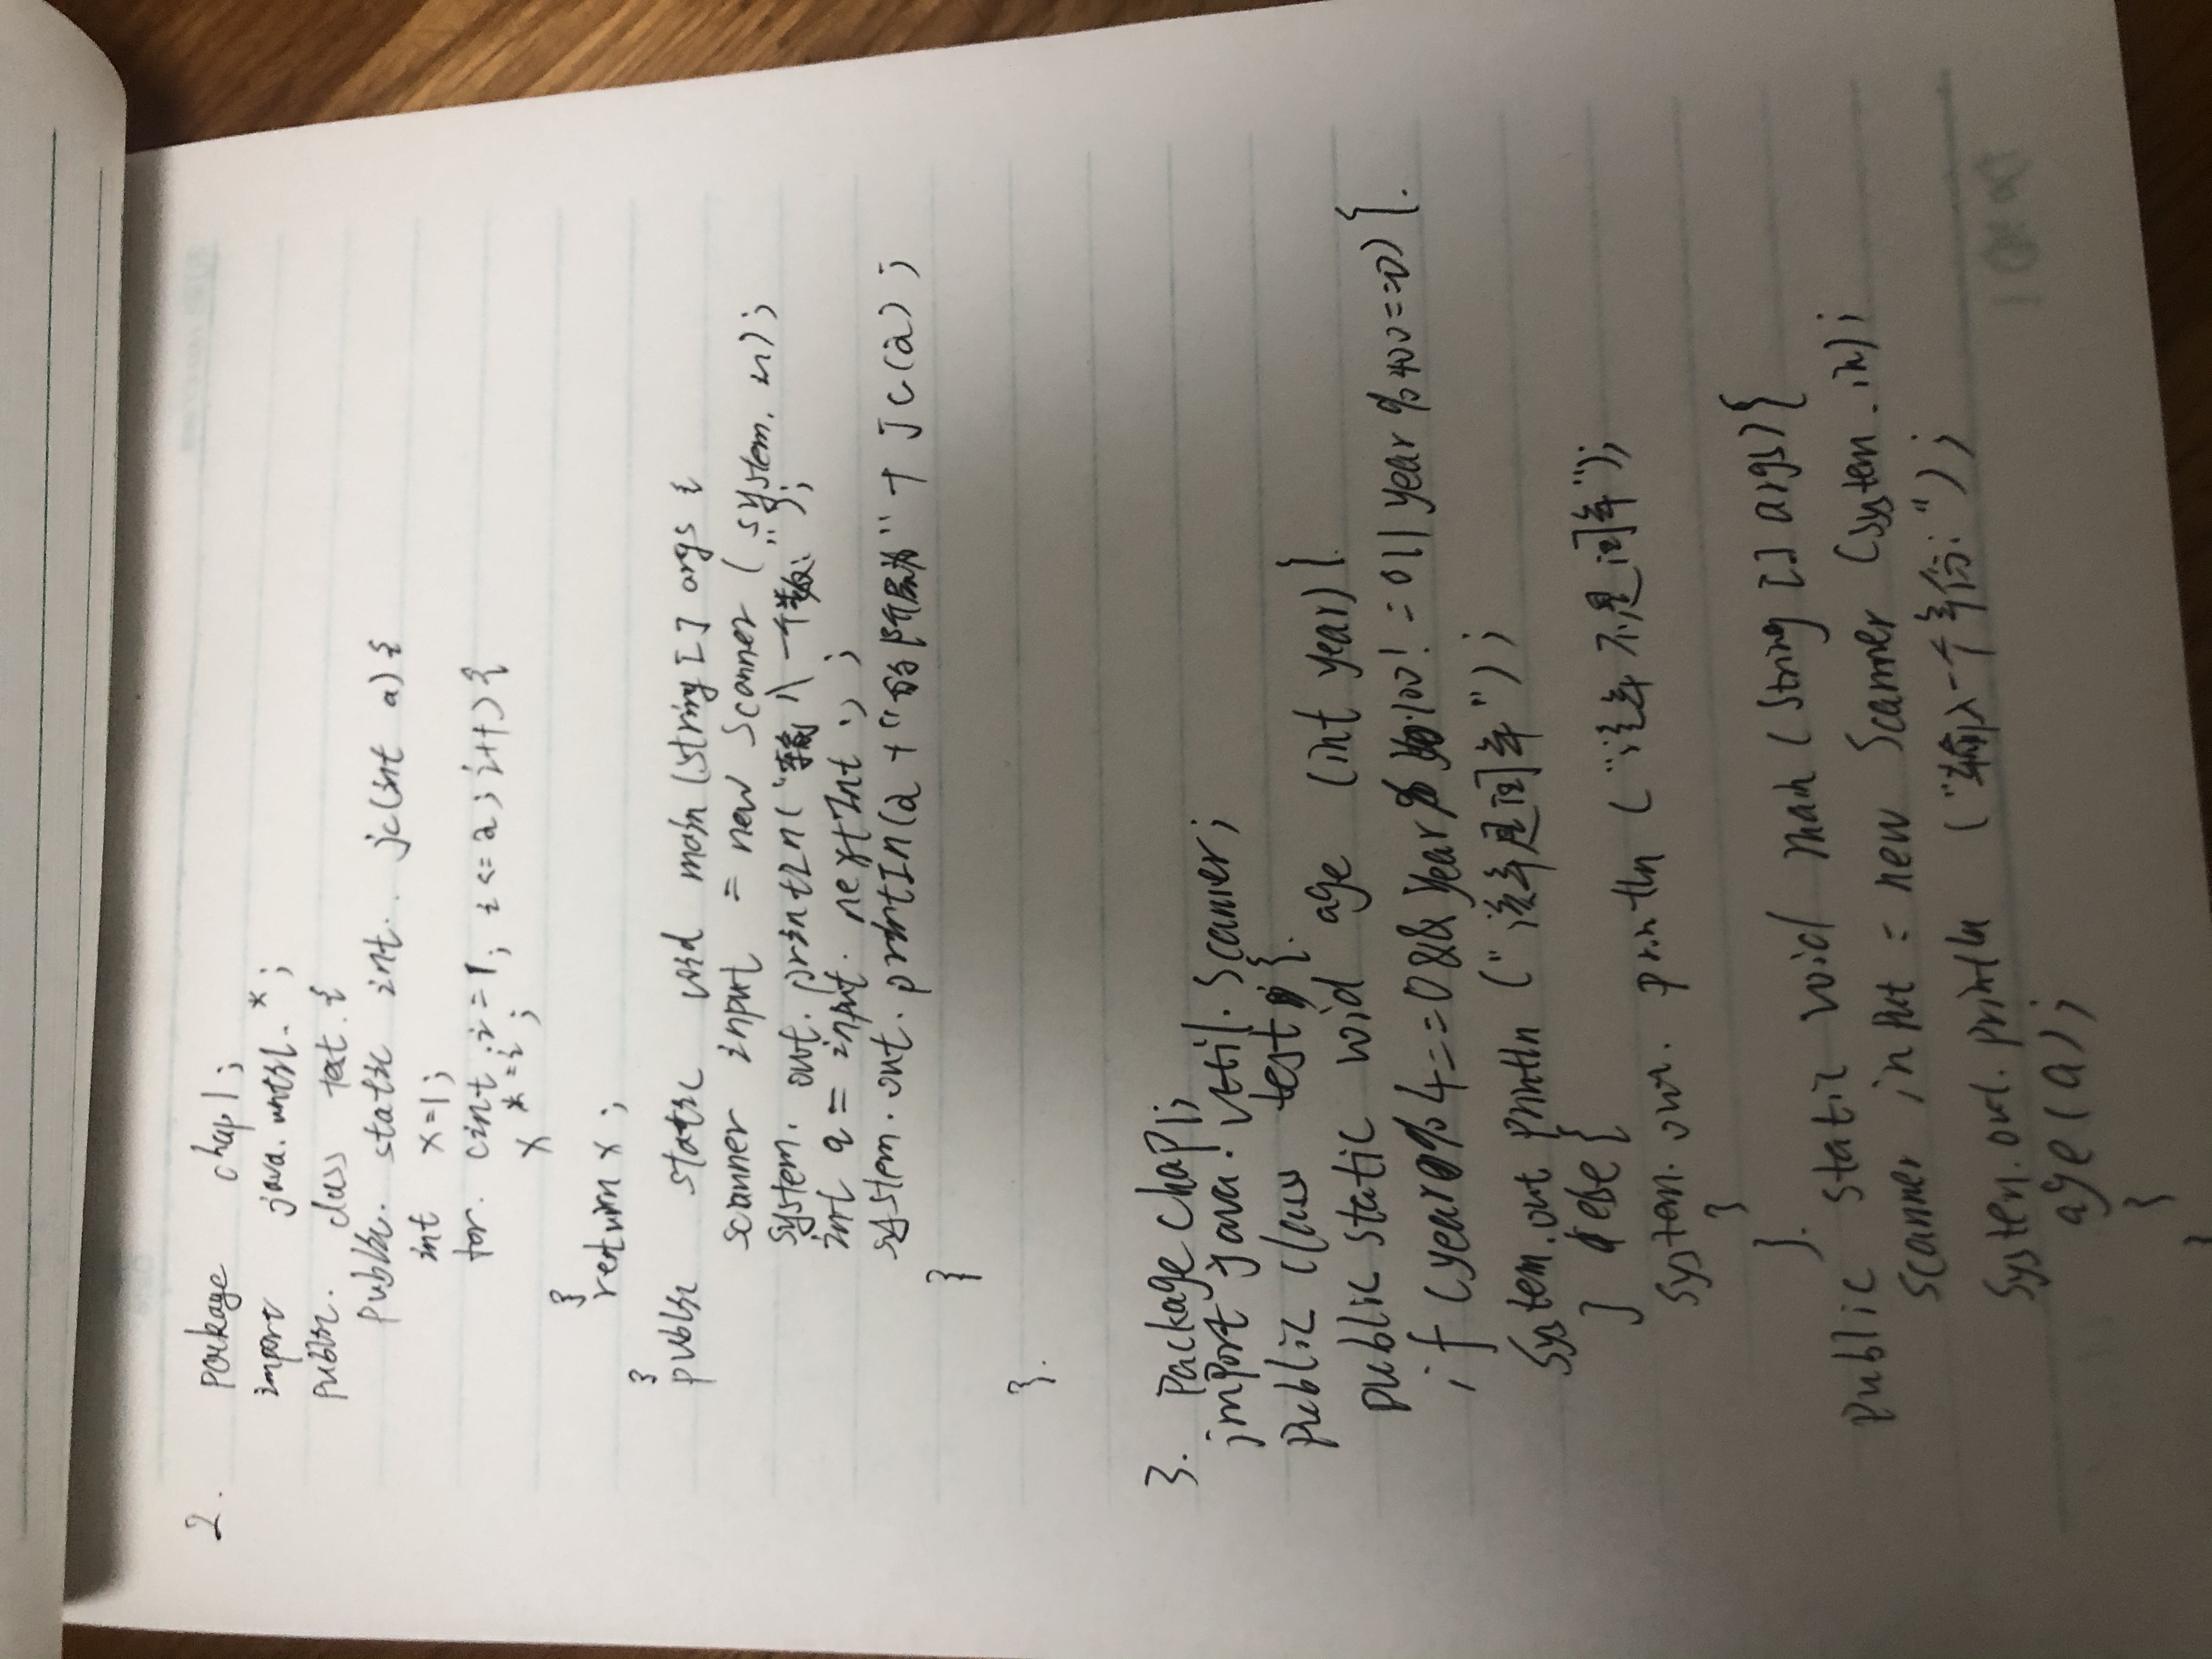 2. package chap1;
import java.until.*;
public. class text.{
public. static int. jc(int a){
int x=1;
for. (int i=1; i<=a; i++){
x*=i;
}
return x;
}
public static void main(String[] args {
scanner input = new Scanner (system.in);
system.out.println("输入一个数:");
int a = input.nextInt();
system.out.println(a+"的阶层为"+jc(a);
}
}.
3. package chap1;
import java.util.Scanner;
public class test{.
public static void age (int year){
if (year%4==0&&year%100!=0||year%400==0){.
System.out println ("该年是闰年");
} else{
System.out. println ("该年不是闰年");
}
}.
public static void main (String[] args){
scanner input = new Scanner (System.in);
System.out.println ("输入一个年份:");
age(a);
}
}